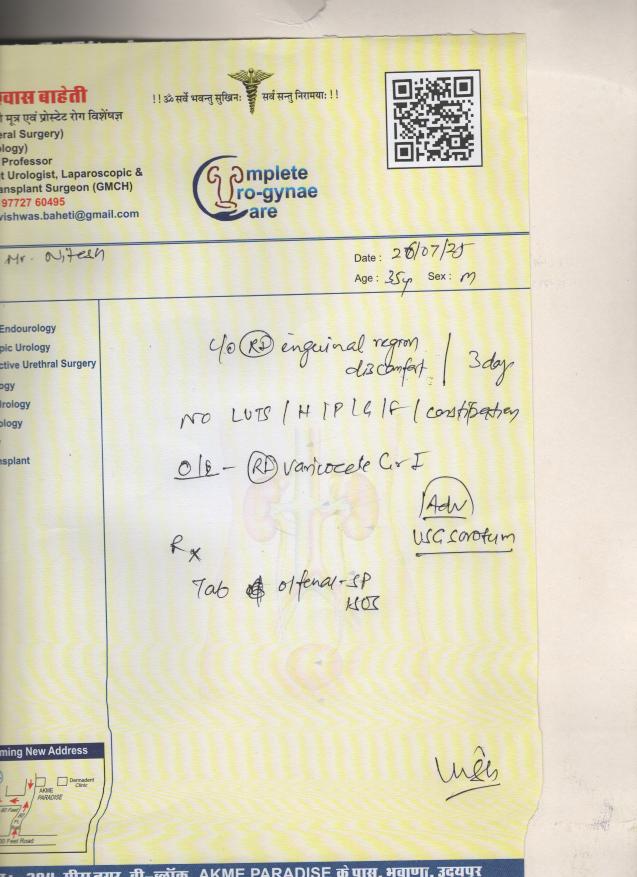 श्वास बाहेती
मूत्र एवं प्रोस्टेट रोग विशेषज्ञ
eral Surgery)
ology)
Professor
t Urologist, Laparoscopic &
ansplant Surgeon (GMCH)
97772 60495
vishwas.baheti@gmail.com
!! ॐ सर्वे भवन्तु सुखिनः सर्व सन्तु निरामयाः !!
mplete
ro-gynae
are
Mr. Nitesh
Date : 26/07/25
Age : 35y Sex : M
Endourology
pic Urology
ctive Urethral Surgery
ogy
rology
ology
nsplant
c/o Rt inguinal region
discomfort / 3 day
NO LUTS / H / P / G / F / constipation
O/E - Rt varicocele Gr I
Adv
USG scrotum
Rx
Tab olfenal-SP
SOS
ming New Address
AKME
PARADISE
Dermadent
Clinic
80 Feet
00 Feet Road
मीरा नगर, बी-ब्लॉक, AKME PARADISE के पास, भुवाणा, उदयपुर